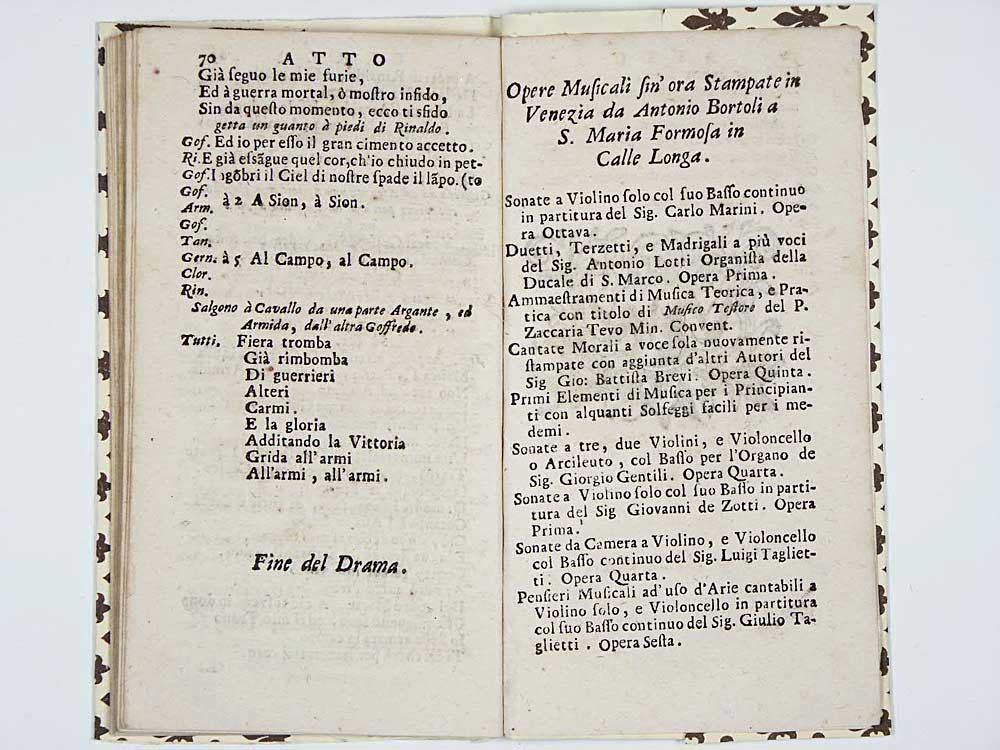 70 ATTO
Già ſeguo le mie furie,
Ed à guerra mortal, ò moſtro infido,
Sin da queſto momento, ecco ti sfido
getta un guanto à piedi di Rinaldo.
Gof. Ed io per eſſo il gran cimento accetto.
Ri. E già eſsãgue quel cor, ch'io chiudo in pet-
Gof. Ingõbri il Ciel di noſtre ſpade il lãpo. (to
Gof.
à 2 A Sion, à Sion.
Arm.
Gof.
Tan.
Gern. à 5 Al Campo, al Campo.
Clor.
Rin.
Salgono à Cavallo da una parte Argante, ed
Armida, dall'altra Goffredo.
Tutti. Fiera tromba
Già rimbomba
Di guerrieri
Alteri
Carmi.
E la gloria
Additando la Vittoria
Grida all'armi
All'armi, all'armi.
Fine del Drama.
Opere Muſicali ſin' ora Stampate in
Venezia da Antonio Bortoli a
S. Maria Formoſa in
Calle Longa.
Sonate a Violino ſolo col ſuo Baſſo continuo
in partitura del Sig. Carlo Marini. Ope-
ra Ottava.
Duetti, Terzetti, e Madrigali a più voci
del Sig. Antonio Lotti Organiſta della
Ducale di S. Marco. Opera Prima.
Ammaeſtramenti di Muſica Teorica, e Pra-
tica con titolo di Muſico Teſtore del P.
Zaccaria Tevo Min. Convent.
Cantate Morali a voce ſola nuovamente ri-
ſtampate con aggiunta d'altri Autori del
Sig Gio: Battiſta Brevi. Opera Quinta.
Primi Elementi di Muſica per i Principian-
ti con alquanti Solfeggi facili per i me-
demi.
Sonate a tre, due Violini, e Violoncello
o Arcileuto, col Baſſo per l'Organo de
Sig. Giorgio Gentili. Opera Quarta.
Sonate a Violino ſolo col ſuo Baſſo in parti-
tura del Sig Giovanni de Zotti. Opera
Prima.
Sonate da Camera a Violino, e Violoncello
col Baſſo continuo del Sig. Luigi Tagliet-
ti. Opera Quarta.
Penſieri Muſicali ad' uſo d'Arie cantabili a
Violino ſolo, e Violoncello in partitura
col ſuo Baſſo continuo del Sig. Giulio Ta-
glietti. Opera Seſta.